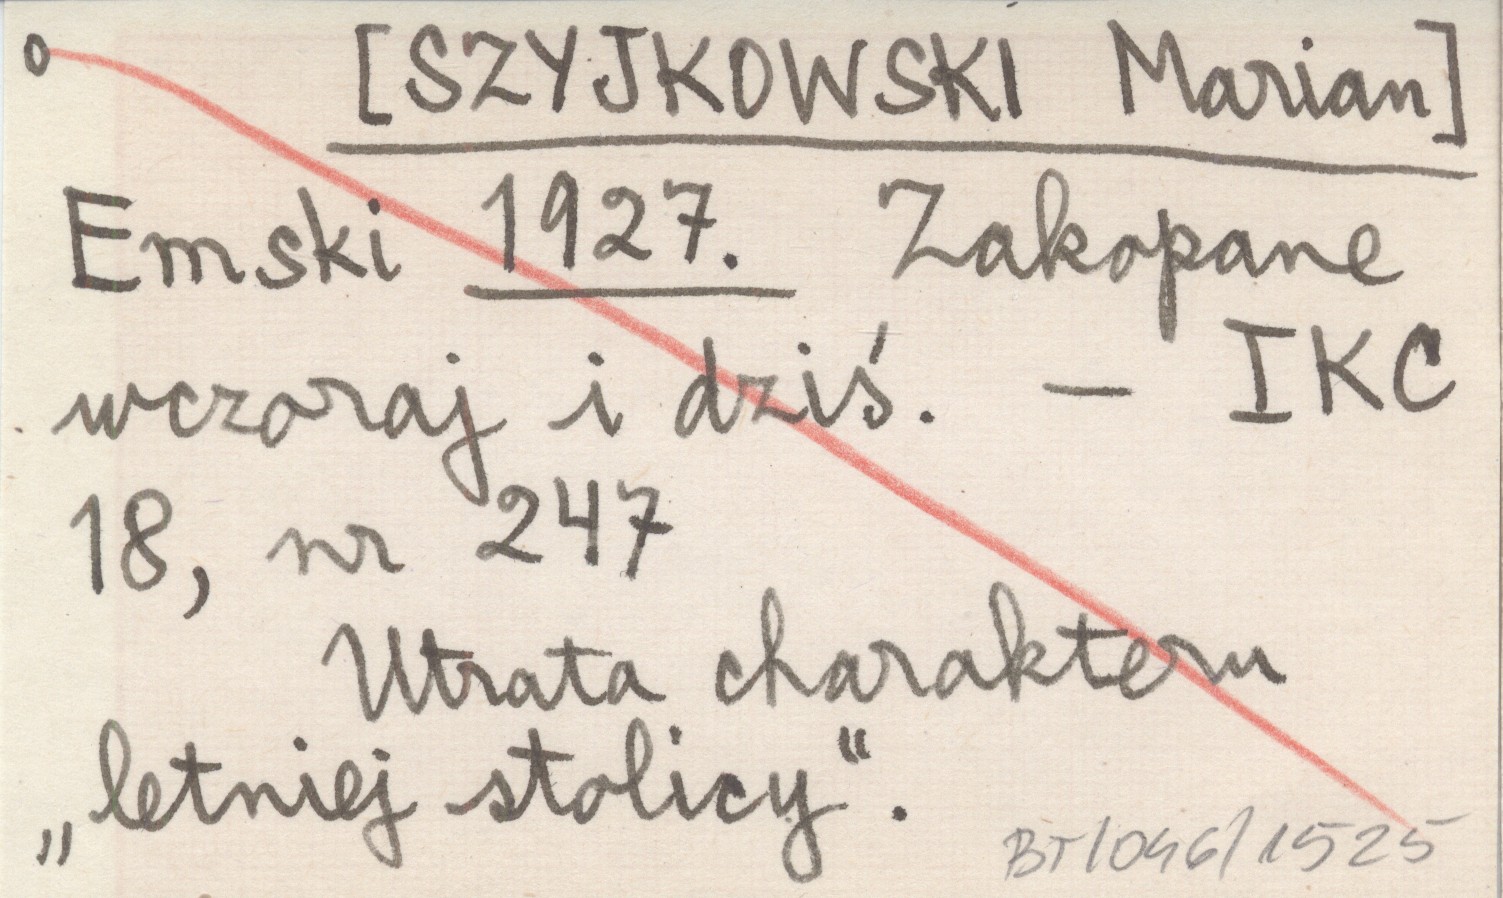 o [SZYJKOWSKI Marian]
Emski 1927. Zakopane
wczoraj i dziś. — IKC
18, nr 247
Utrata charakteru
„letniej stolicy“.
BT/046/1525